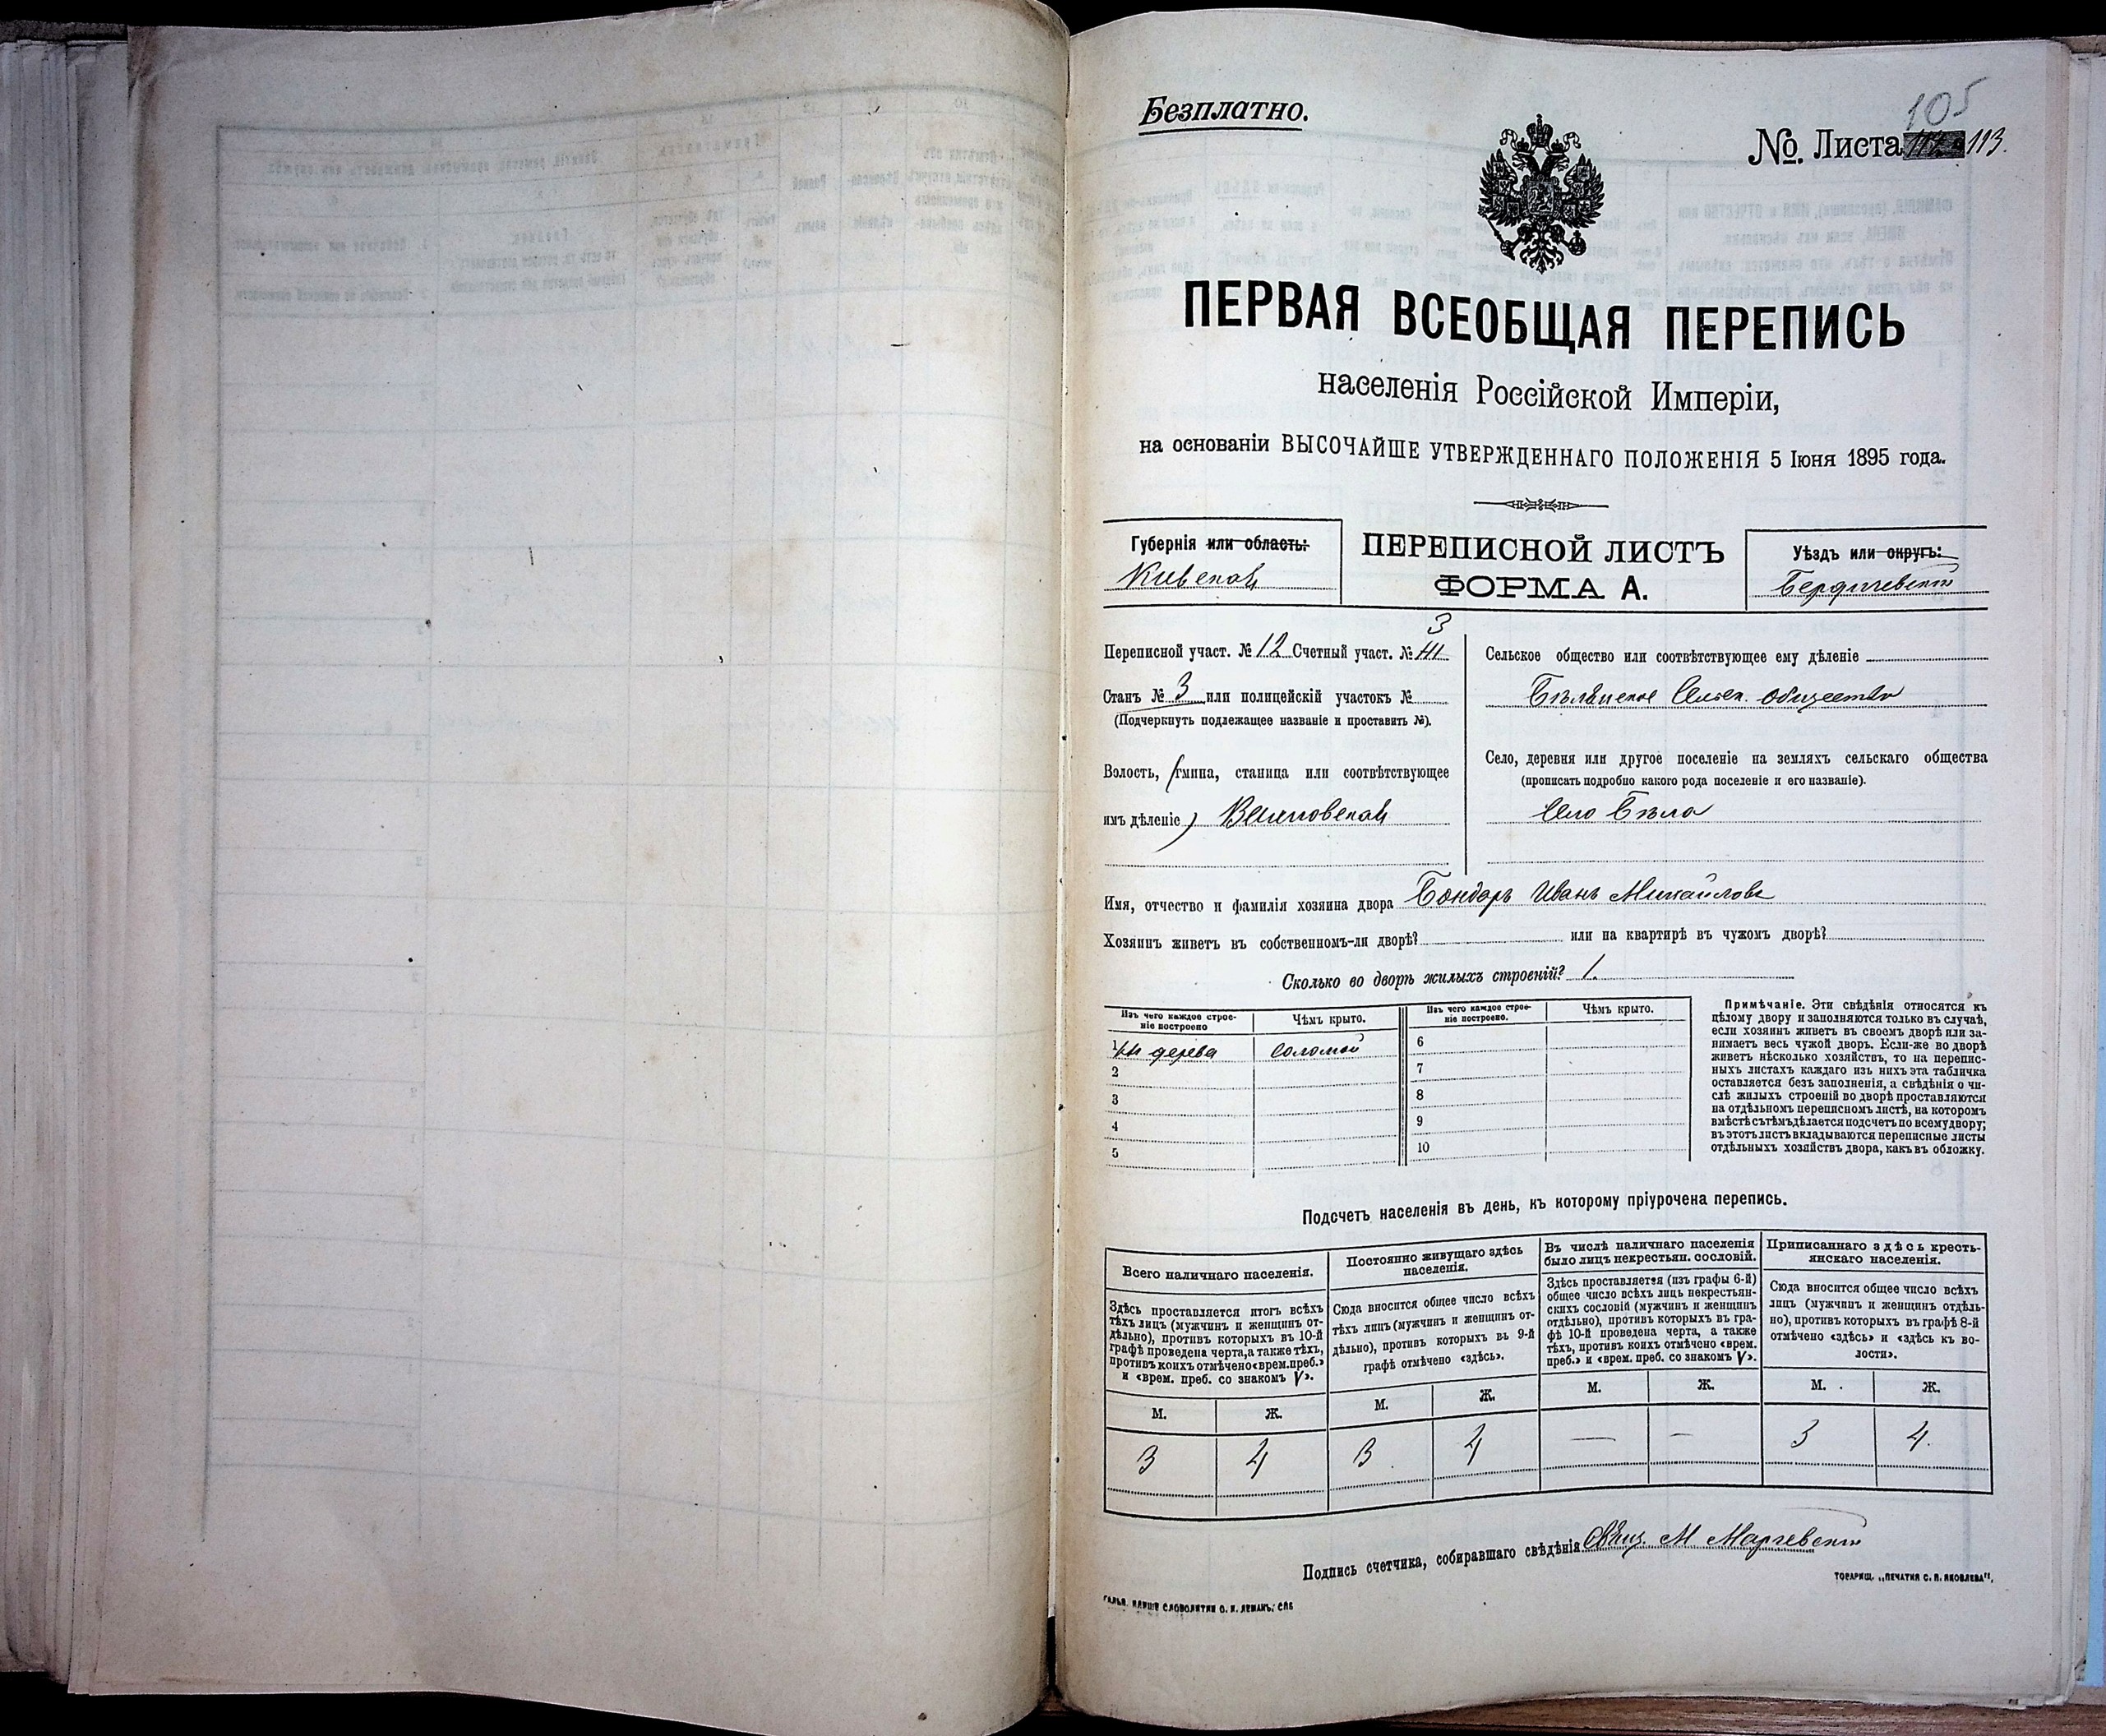 105
Безплатно.
№. Листа 113.
ПЕРВАЯ ВСЕОБЩАЯ ПЕРЕПИСЬ
населенія Россійской Имперіи,
на основаніи ВЫСОЧАЙШЕ УТВЕРЖДЕННАГО ПОЛОЖЕНІЯ 5 Іюня 1895 года.
Губернія или область:
Кивская
ПЕРЕПИСНОЙ ЛИСТЪ
ФОРМА А.
Уѣздъ или округъ:
Бердичевскій
3
Переписной участ. № 12 Счетный участ. № III
Станъ № 3 или полицейскій участокъ №
(Подчеркнуть подлежащее названіе и проставить №).
Волость, (гмина, станица или соотвѣтствующее
имъ дѣленіе)
Сельское общество или соотвѣтствующее ему дѣленіе
Сельск. общество
Село, деревня или другое поселеніе на земляхъ сельскаго общества
(прописать подробно какого рода поселеніе и его названіе).
Село Бѣла
Имя, отчество и фамилія хозяина двора Бондарь Иванъ Михайловъ
Хозяинъ живетъ въ собственномъ-ли дворѣ? или на квартирѣ въ чужомъ дворѣ?
Сколько во дворѣ жилыхъ строеній? 1.
Изъ чего каждое строеніе построено
Чѣмъ крыто.
Изъ чего каждое строеніе построено.
Чѣмъ крыто.
1 дерева соломой
2
3
4
5
6
7
8
9
10
Примѣчаніе. Эти свѣдѣнія относятся къ
цѣлому двору и заполняются только въ случаѣ,
если хозяинъ живетъ въ своемъ дворѣ или за-
нимаетъ весь чужой дворъ. Если-же во дворѣ
живетъ нѣсколько хозяйствъ, то на перепис-
ныхъ листахъ каждаго изъ нихъ эта табличка
оставляется безъ заполненія, а свѣдѣнія о чи-
слѣ жилыхъ строеній во дворѣ проставляются
на отдѣльномъ переписномъ листѣ, на которомъ
вмѣстѣ съ тѣмъ дѣлается подсчетъ по всему двору;
въ этотъ листъ вкладываются переписные листы
отдѣльныхъ хозяйствъ двора, какъ въ обложку.
Подсчетъ населенія въ день, къ которому пріурочена перепись.
Всего наличнаго населенія.
Здѣсь проставляется итогъ всѣхъ
тѣхъ лицъ (мужчинъ и женщинъ от-
дѣльно), противъ которыхъ въ 10-й
графѣ проведена черта, а также тѣхъ,
противъ коихъ отмѣчено «врем. преб.»
и «врем. преб. со знакомъ V».
Постоянно живущаго здѣсь
населенія.
Сюда вносится общее число всѣхъ
тѣхъ лицъ (мужчинъ и женщинъ от-
дѣльно), противъ которыхъ въ 9-й
графѣ отмѣчено «здѣсь».
Въ числѣ наличнаго населенія
было лицъ некрестьян. сословій.
Здѣсь проставляется (изъ графы 6-й)
общее число всѣхъ лицъ некрестьян-
скихъ сословій (мужчинъ и женщинъ
отдѣльно), противъ которыхъ въ гра-
фѣ 10-й проведена черта, а также
тѣхъ, противъ коихъ отмѣчено «врем.
преб.» и «врем. преб. со знакомъ V».
Приписаннаго здѣсь кресть-
янскаго населенія.
Сюда вносится общее число всѣхъ
лицъ (мужчинъ и женщинъ отдѣль-
но), противъ которыхъ въ графѣ 8-й
отмѣчено «здѣсь» и «здѣсь къ во-
лости».
М. Ж. М. Ж. М. Ж. М. Ж.
3 4 3 4 — — 3 4.
Подпись счетчика, собиравшаго свѣдѣнія Свящ. М
ТОВАРИЩ. „ПЕЧАТНЯ С. П. ЯКОВЛЕВА".
СЛОВОЛИТНИ О. И. ЛЕМАНЪ, СПБ